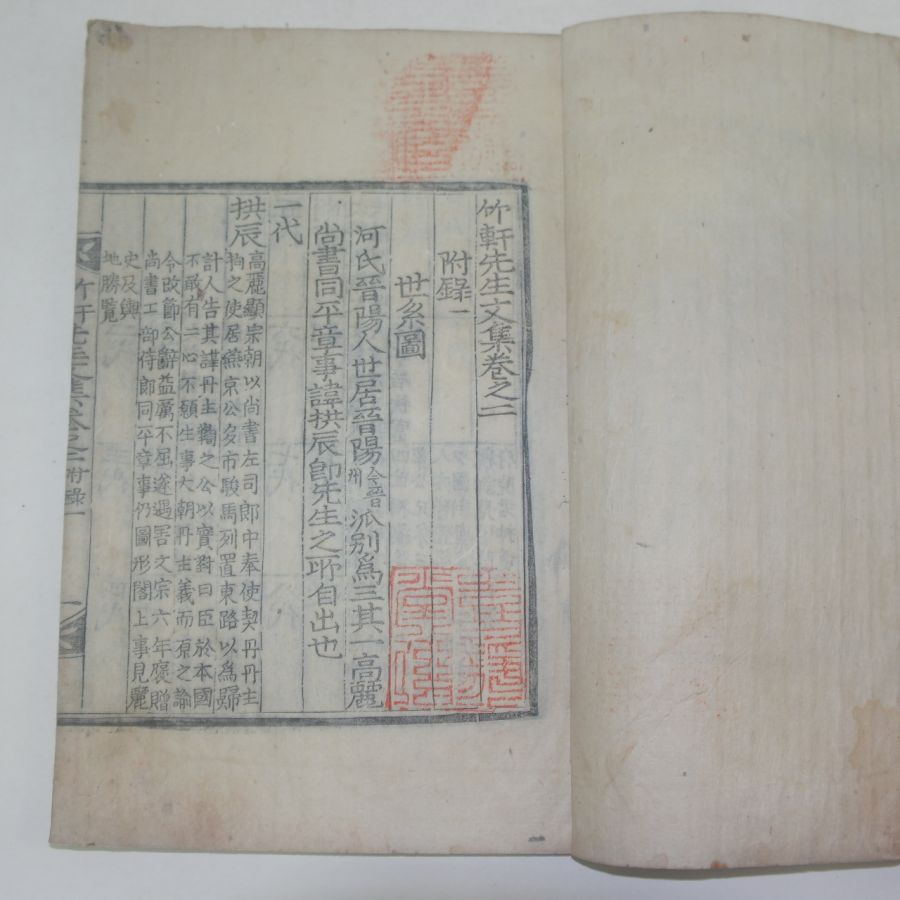 竹軒先生文集卷之二
附錄一
世系圖
河氏晉陽人世居晉陽今晉州派别爲三其一高麗
尚書同平章事諱拱辰卽先生之所自出也
一代
拱辰
高麗顯宗朝以尚書左司郎中奉使契丹丹主
拘之使居燕京公多市駿馬列置東路以爲歸
計人告其謀丹主鞫之公以實對曰臣於本國
不敢有二心不願生事大朝丹主義而原之諭
令改節公辭益厲不屈遂遇害文宗六年褒贈
尚書工部侍郎同平章事仍圖形閣上事見麗
史及輿
地勝覽
竹軒先生文集卷之二 附錄 一